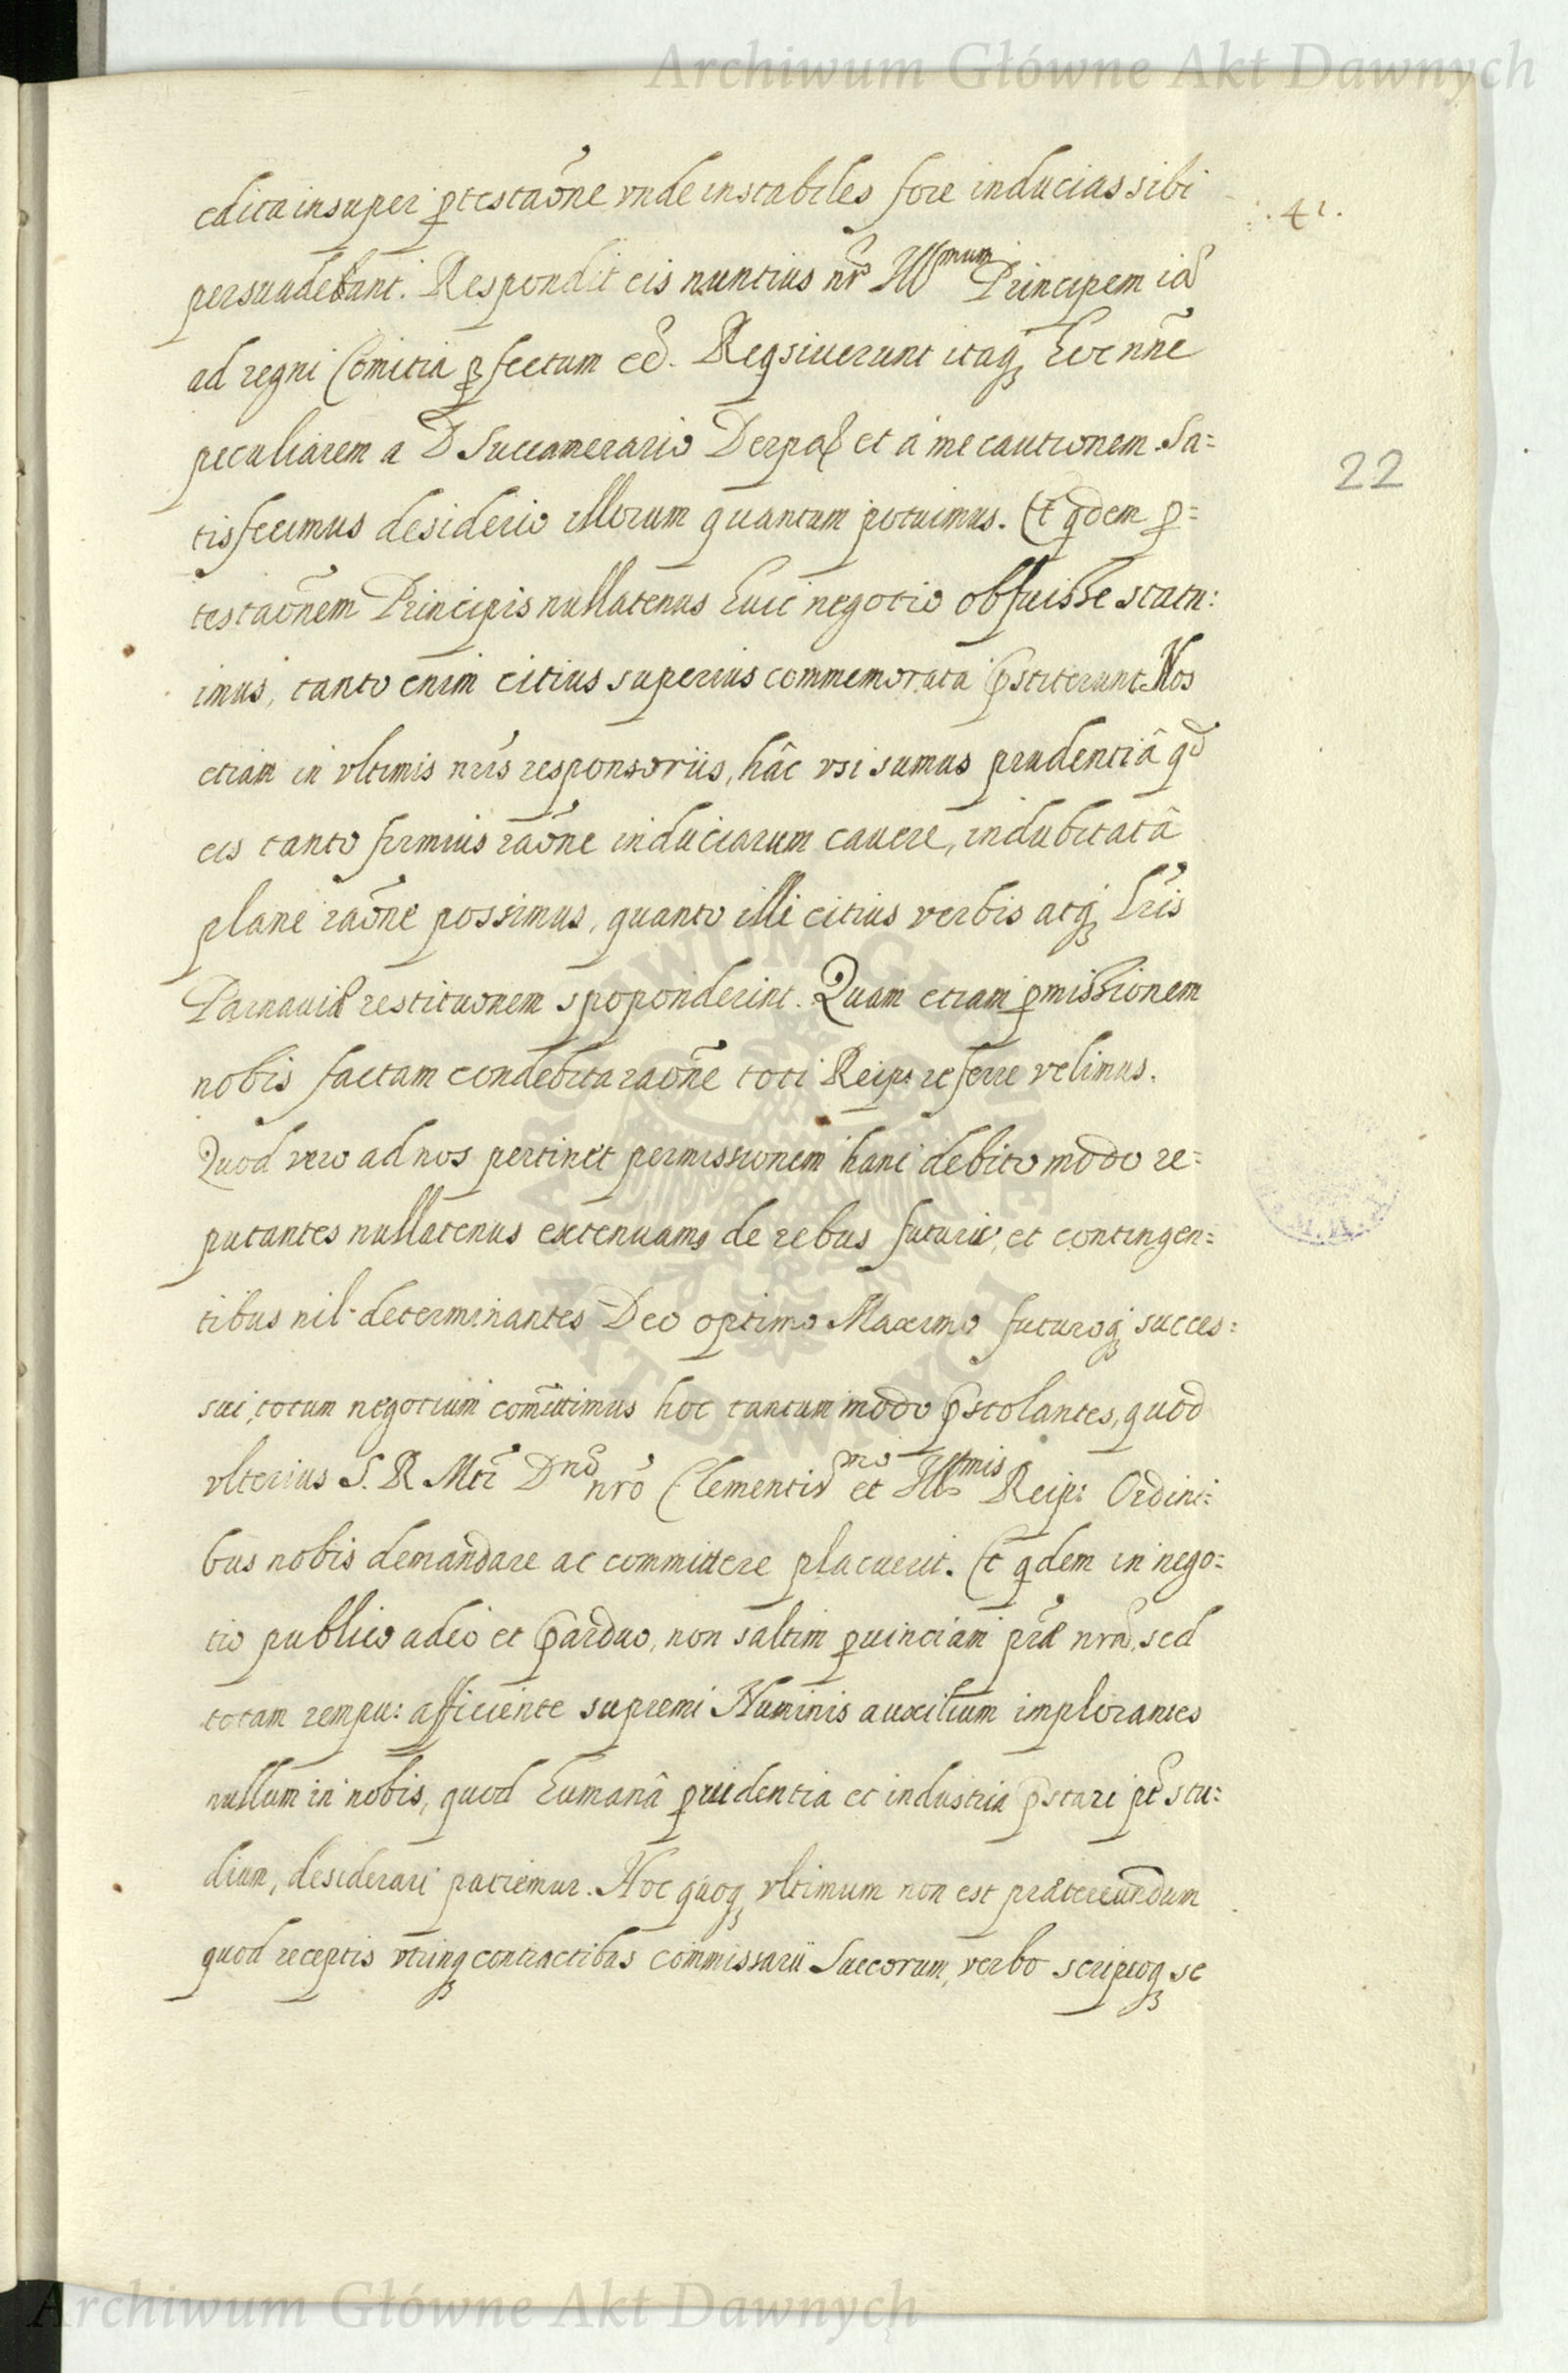 Archiwum Główne Akt Dawnych
edita insuper ꝓtestaõne vnde instabiles fore inducias sibi
.41.
persuadebant. Respondit eis nuntius nr̃ Illmum Principem iã
ad regni Comitia ꝓfectum eẽ. Reqsiuerunt itaq hoc nñe
peculiarem a D Succamerario Derpat et a me cautionem. Sa=
22
tisfecimus desiderio illorum quantum potuimus. Et qdem ꝓ=
testaõnem Principis nullatenus huic negotio obfuisse statu:
imus, tanto enim citius superius commemorata p̃stiterunt. Nos
etiam in vltimis nr̃is responsoriis, hâc vsi sumus prudentiâ qd
eis tanto firmius raõne induciarum cauere, indubitatâ
plane raõne possimus, quanto illi citius verbis atq lr̃is
Parnauiæ restituonem spoponderint. Quam etiam ꝓmissionem
nobis factam condebita raõne toti Reip: referre velimus.
Quod vero ad nos pertinet permissionem hanc debito modo re=
putantes nullatenus extenuamq de rebus futuris, et contingen=
tibus nil determinantes Deo optimo Maximo futuroq succes:
sui, totum negotium com̃ittimus hoc tantum modo p̃stolantes, quod
vlterius S. R Mti Dno nrõ Clementismo et Illmis Reip: Ordini:
bus nobis demandare ac committere placuerit. Et qdem in nego=
tio publico adeo et p̃arduo, non saltim ꝓuinciam pr̃a nrã, sed
totam rempu: afficiente supremi Numinis auxilium implorantes
nullum in nobis, quod humanâ prudentia et industria p̃stari pt stu:
dium, desiderari patiemur. Hoc quoq vltimum non est prætereundum
quod receptis vtrinq contractibus commissarii Suecorum, verbo scriptoq se
Archiwum Główne Akt Dawnych